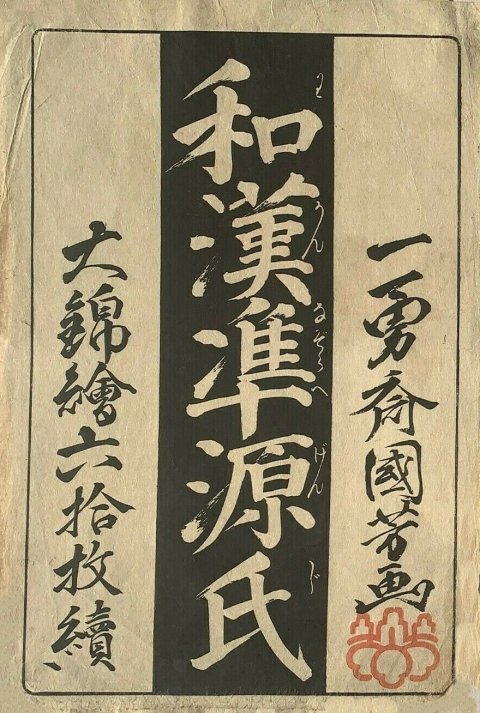 一勇斎國芳画
和漢準源氏
わかんなぞらへげんじ
大錦繪六拾枚續